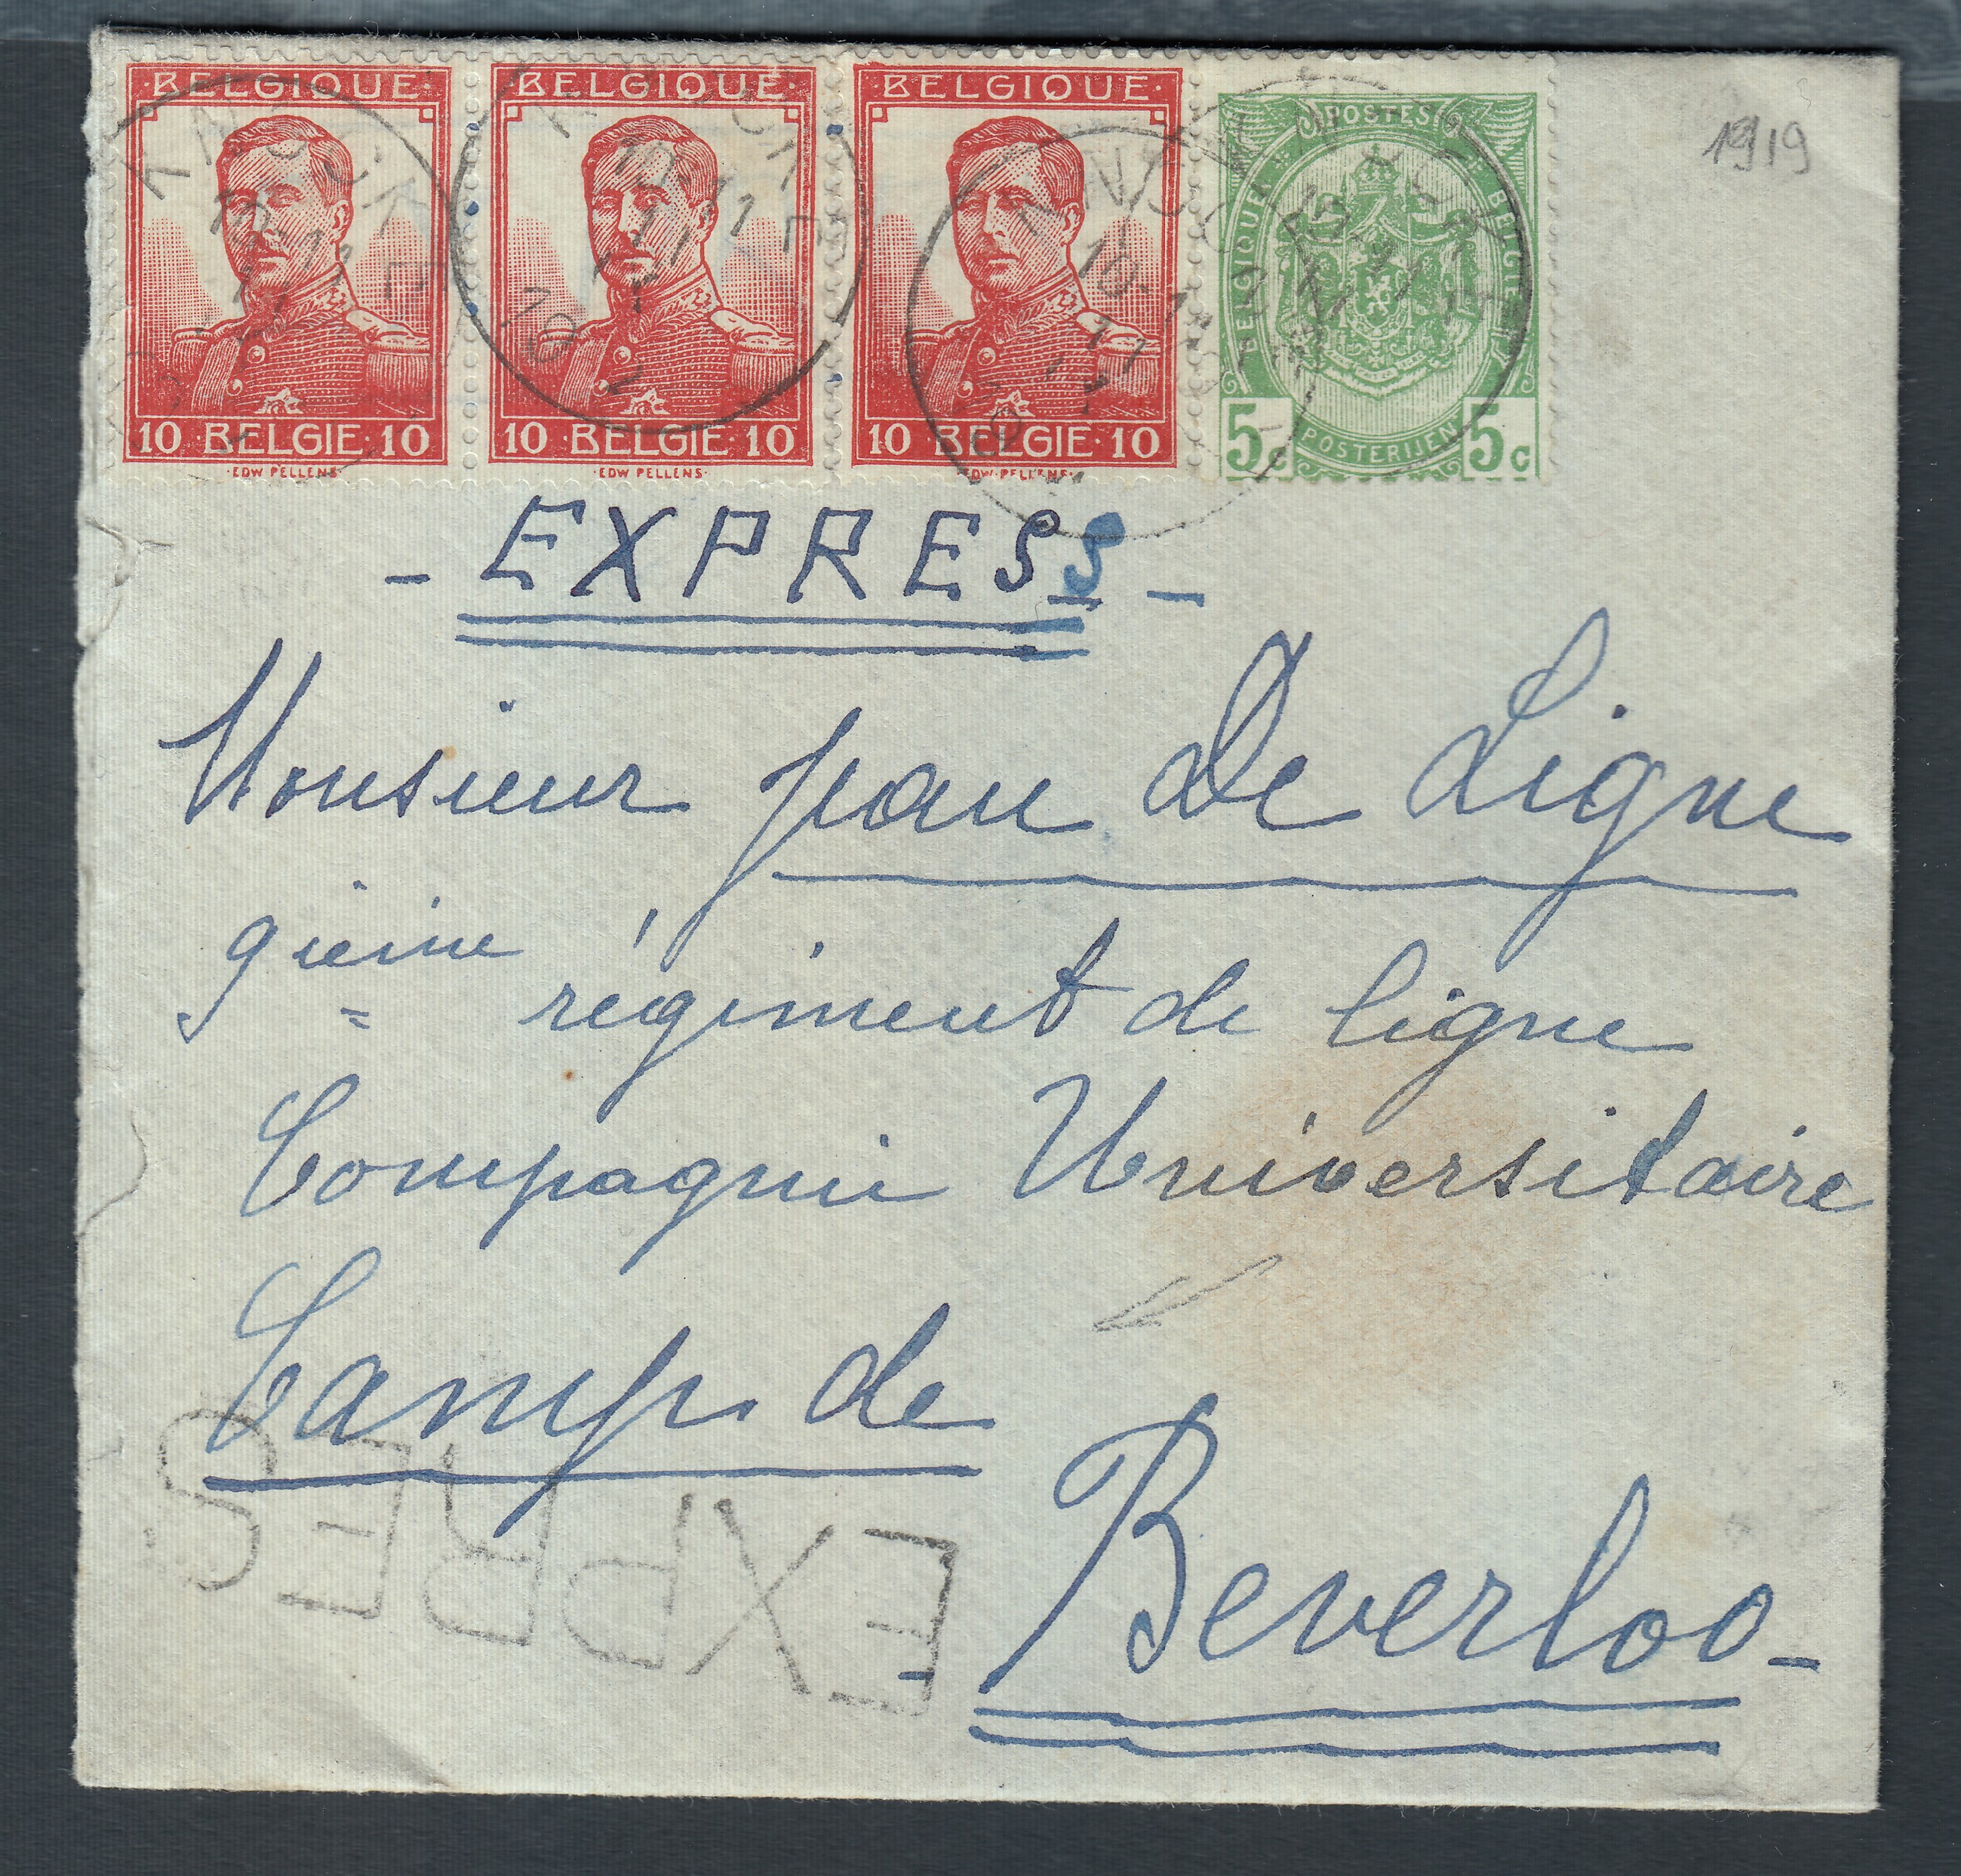 BELGIQUE BELGIQUE BELGIQUE POSTES
BELGIQUE BELGIE
10 BELGIE 10 10 BELGIE 10 10 BELGIE 10 5c POSTERIJEN 5c
EDW PELLENS EDW PELLENS EDW PELLENS
1919
- EXPRESS -
Monsieur Jean De Ligne
9ième régiment de ligne
Compagnie Universitaire
Camp. de
Beverloo -
EXPRES